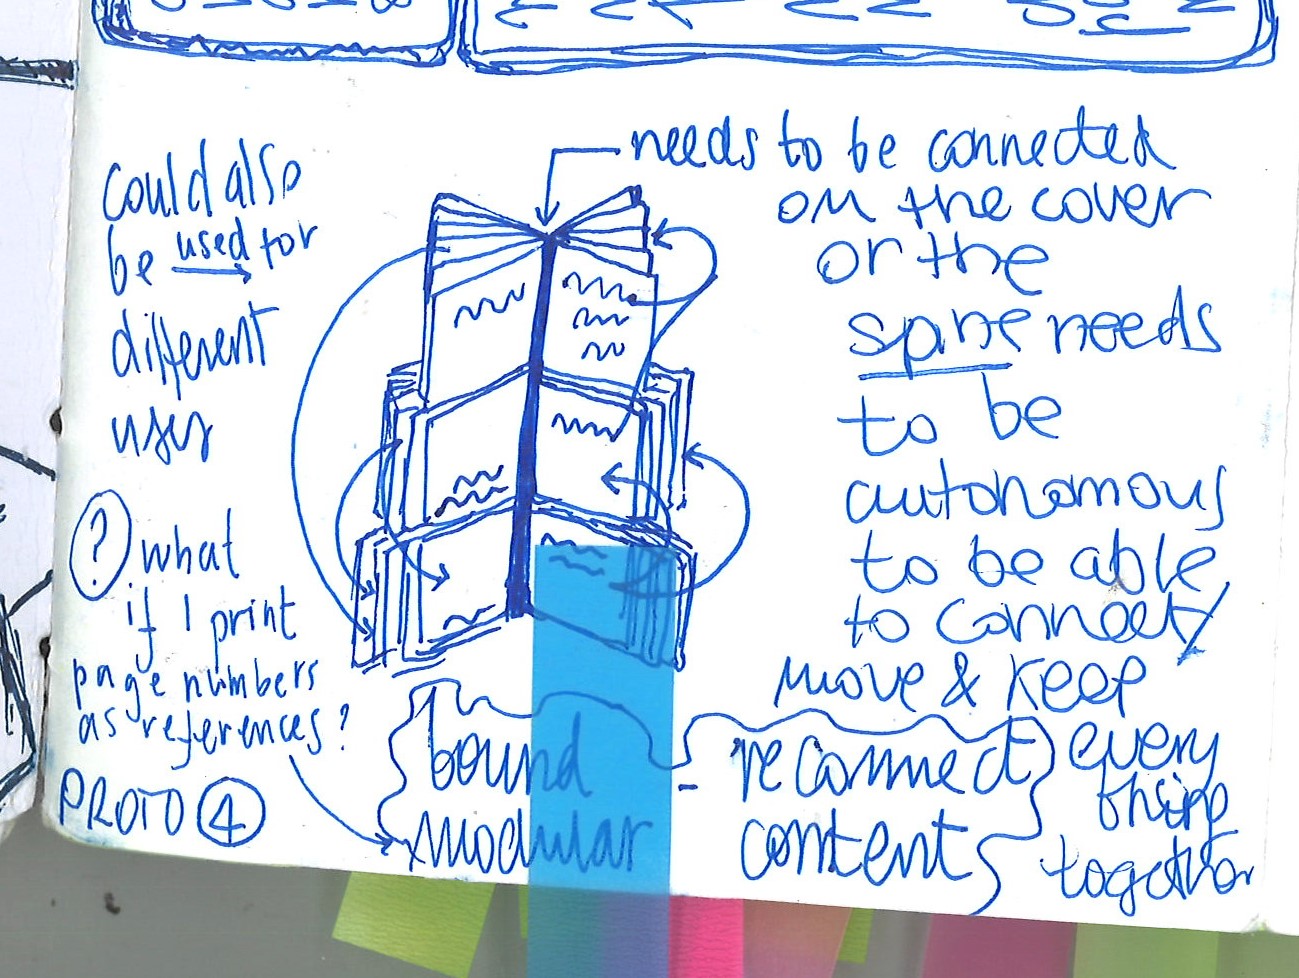 needs to be connected
on the cover
or the
spine needs
to be
autonomous
to be able
to connect,
move & keep
every
thing
together
could also
be used for
different
uses
? what
if I print
page numbers
as references?
PROTO 4
bound - reconnect
modular content